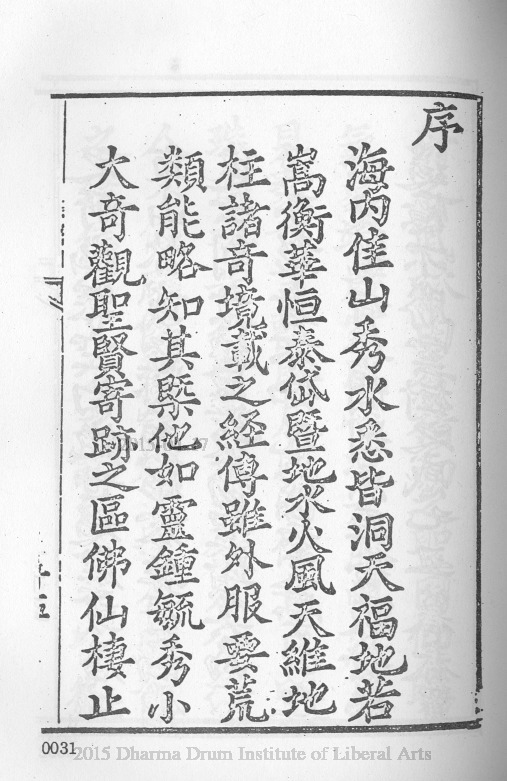 序
海內佳山秀水悉皆洞天福地若
嵩衡華恒泰岱暨地水火風天維地
柱諸奇境載之經傳雖外服要荒
類能略知其槩他如靈鍾毓秀小
大奇觀聖賢寄跡之區佛仙棲止
0031
2015 Dharma Drum Institute of Liberal Arts